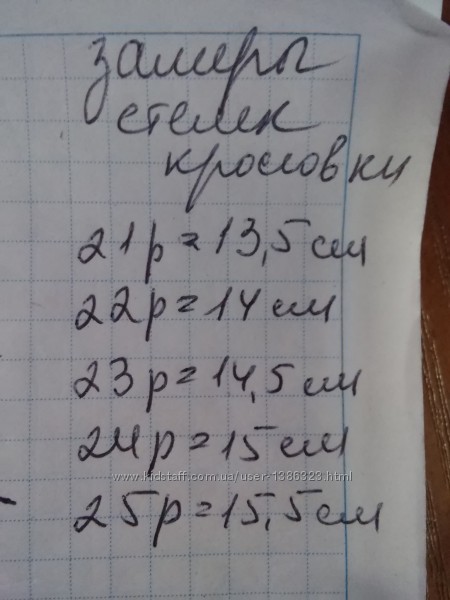 замеры
стелек
кросовки
21р=13,5см
22р=14см
23р=14,5см
24р=15см
www.kidstaff.com.ua/user-1386323.html
25р=15,5см